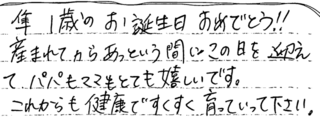 隼 1歳のお誕生日おめでとう!!
産まれてからあっという間にこの日を迎え
て パパもママもとても嬉しいです。
これからも健康ですくすく育っていって下さい。